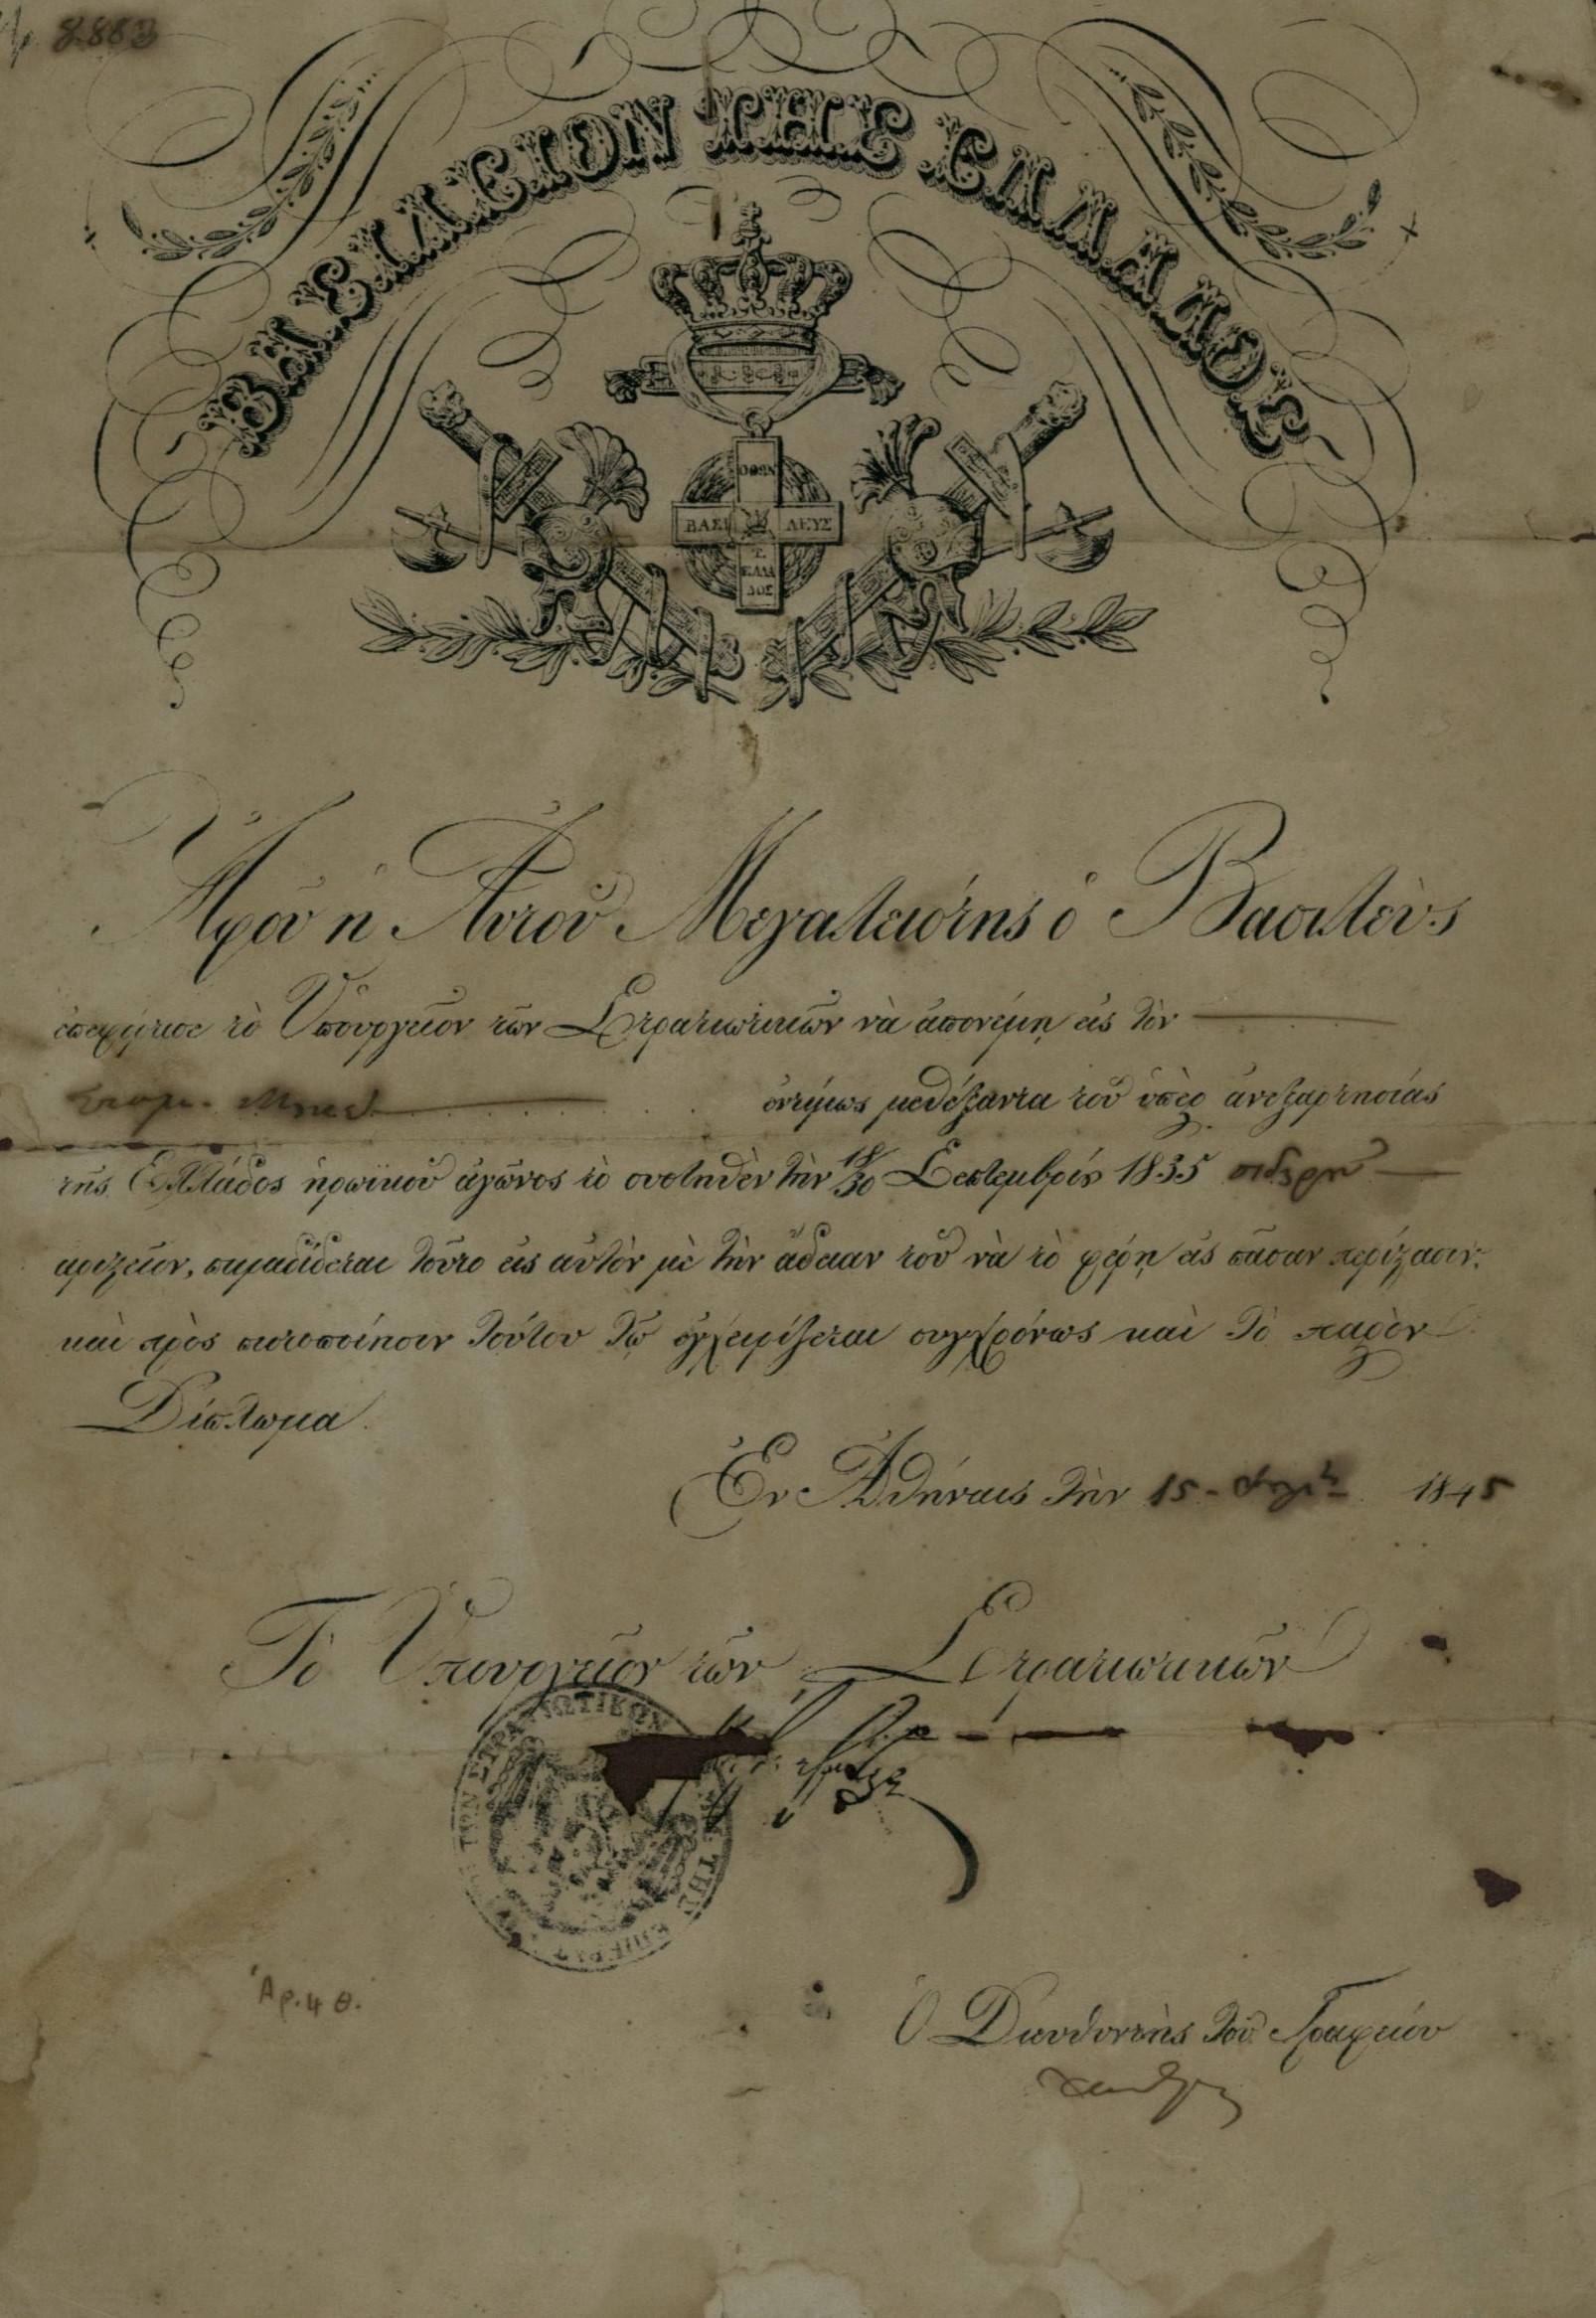 8883
ΒΑΣΙΛΕΙΟΝ ΤΗΣ ΕΛΛΑΔΟΣ
ΟΘΩΝ
ΒΑΣΙ ΛΕΥΣ
Τ.
ΕΛΛΑ
ΔΟΣ
Ἀφοῦ ἡ Αὐτοῦ Μεγαλειότης ὁ Βασιλεὺς
ἐπεφόρτισε τὸ Ὑπουργεῖον τῶν Στρατιωτικῶν νὰ ἀπονέμῃ εἰς τὸν
ἐντίμως μεθέξαντα τοῦ ὑπὲρ ἀνεξαρτησίας
τῆς Ἑλλάδος ἡρωϊκοῦ ἀγῶνος τὸ συστηθὲν τὴν 18/30 Σεπτεμβρίου 1835 σιδηροῦν
ἀριστεῖον, παραδίδεται τοῦτο εἰς αὐτὸν μὲ τὴν ἄδειαν τοῦ νὰ τὸ φέρῃ εἰς πᾶσαν περίστασιν·
καὶ πρὸς πιστοποίησιν τούτου τῷ ἐγχειρίζεται συγχρόνως καὶ τὸ παρὸν
Δίπλωμα.
Ἐν Ἀθήναις τὴν 15 1845
Τὸ Ὑπουργεῖον τῶν Στρατιωτικῶν
ΤΩΝ ΣΤΡΑΤΙΩΤΙΚΩΝ ΤΗΣ ΕΠΙΚΡΑΤ
Ἀρ. 4 θ.
Ὁ Διευθυντὴς τοῦ Γραφείου